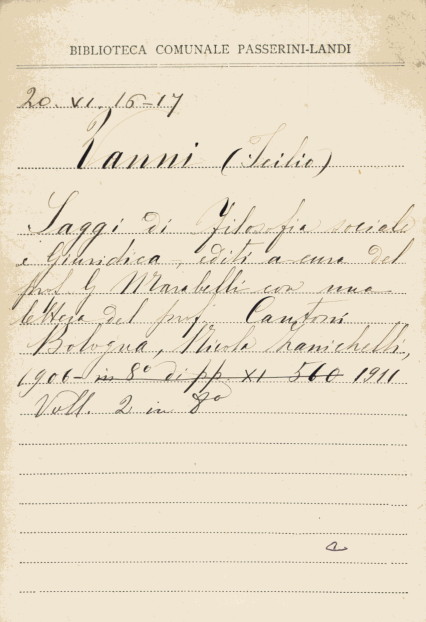 BIBLIOTECA COMUNALE PASSERINI-LANDI
20. XI. 16-17
Vanni (Icilio)
Saggi di Filosofia sociale
e Giuridica, editi a cura del
prof G Marabelli con una
lettera del prof Cantoni
Bologna, Nicola Zanichelli,
1906 - in 8º di pp. XI 560 1911
Voll. 2 in 8º